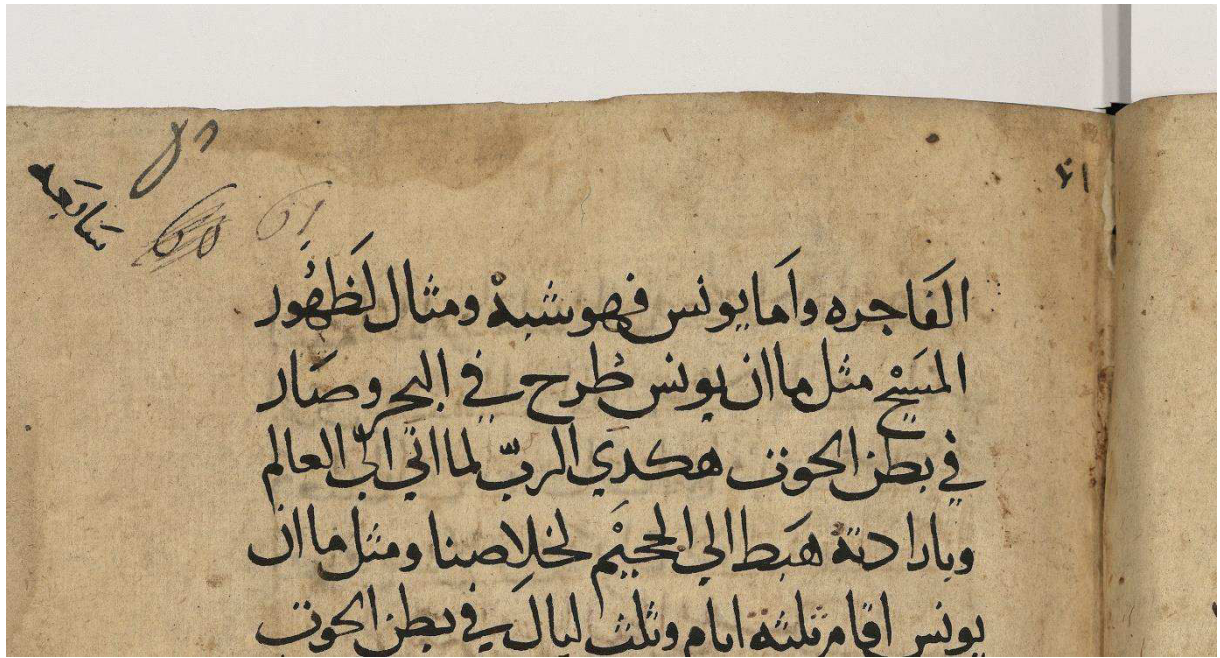 سابعه
81
60 61
٤١
الفَاجره واَما يونس فهو شبهْ ومثال لظَهُور
المسَيْح مثل ما ان يونس طُرح في البحر وصَار
في بطن الحوت هكدي الربّ لما اتي الي العالم
وبارادته هَبط الي الجحيْم لخلاصنا ومثل ما ان
يونس اقام ثلثة ايام وثلث ليال في بطن الحوت